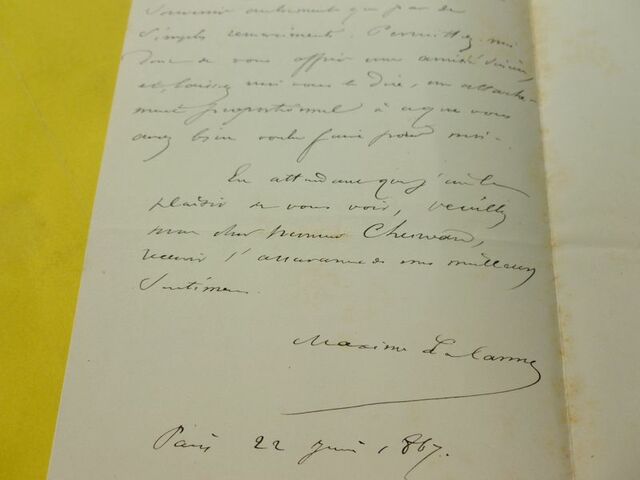 souvenir autrement que par de
simples remerciments. Permettez moi
donc de vous offrir une amitié sincère,
et, laissez moi vous le dire, un attache-
ment proportionnel à ce que vous
avez bien voulu faire pour moi.
En attendant que j'aie le
plaisir de vous voir, veuillez
mon cher Monsieur
recevoir l'assurance de mes meilleurs
sentimens.
Maxime Lalanne
Paris 22 juin 1867.